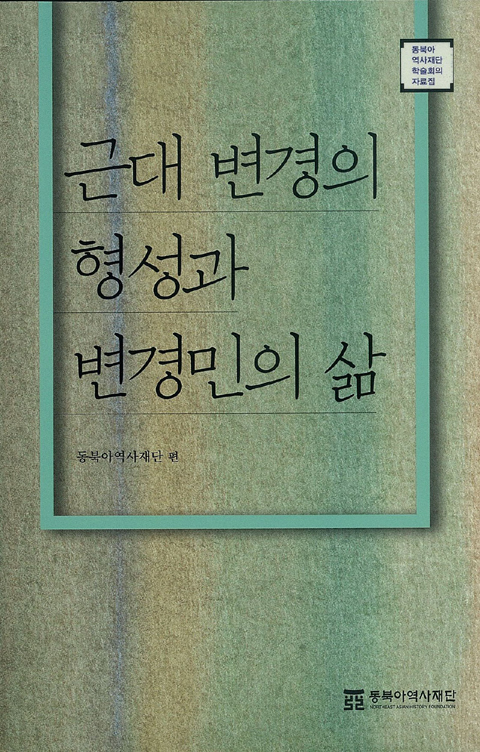 동북아
역사재단
학술회의
자료집
근대 변경의
형성과
변경민의 삶
동북아역사재단 편
동북아역사재단
NORTHEAST ASIAN HISTORY FOUNDATION